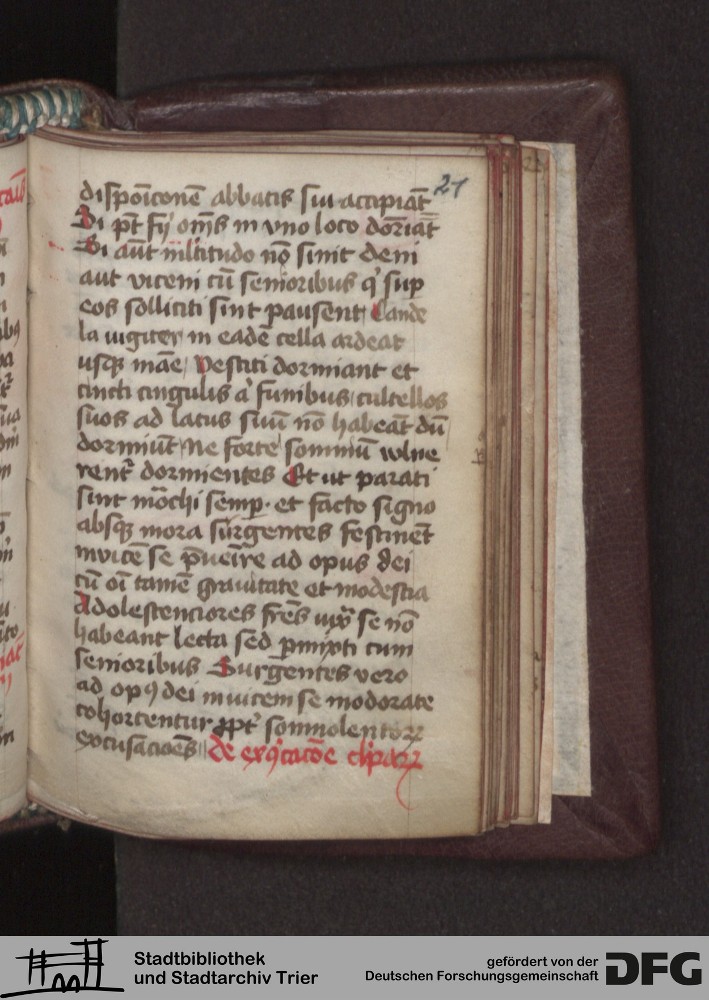 27
dispoiconē abbatis sui accipiāt
Si pt̄ fi͛ om̄s in vno loco dor̄iāt
Si aūt mltitudo nō sinit deni
aut viceni cū senioribus q͛ sup
eos solliciti sint pausent Cande
la iugiter in eadē cella ardeat
usqꝫ māe Vestiti dormiant et
cincti cingulis a͛ funibus cultellos
suos ad latus suū nō habeāt dū
dormiūt Ne forte somniū vlne
rent͛ dormientes Et ut parati
sint mōchi semꝑ et facto signo
absqꝫ mora surgentes festinēt
invicē se p̄ueīre ad opus dei
cū oī tamē grauitate et modestia
Adolescenciores fres̄ iux͛ se nō
habeant lecta sed ꝑmixti cum
senioribus Surgentes vero
ad opꝰ dei invicem se moderate
cohortentur ꝓpt͛ somnolentoꝝ
excusacioēs de
Stadtbibliothek
und Stadtarchiv Trier
gefördert von der
Deutschen Forschungsgemeinschaft
DFG